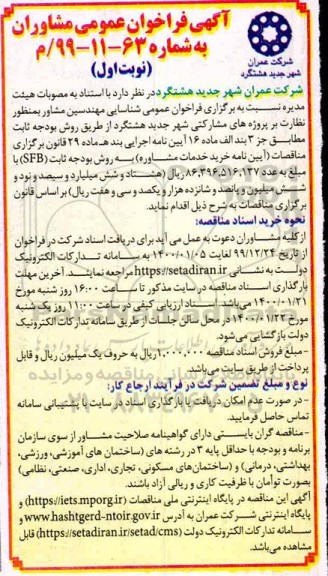 آگهی فراخوان عمومی مشاوران
به شماره ۶۳-۱۱-۹۹/م
(نوبت اول)
شرکت عمران
شهر جدید هشتگرد
شرکت عمران شهر جدید هشتگرد در نظر دارد با استناد به مصوبات هیئت
مدیره نسبت به برگزاری فراخوان عمومی شناسایی مهندسین مشاور بمنظور
نظارت بر پروژه های مشارکتی شهر جدید هشتگرد از طریق روش بودجه ثابت
مطابق جز ۳ بند الف ماده ۱۶ آیین نامه اجرایی بند هـ ماده ۲۹ قانون برگزاری
مناقصات (آیین نامه خرید خدمات مشاوره) به روش بودجه ثابت (SFB) با
مبلغ به عدد ۸۶,۳۹۶,۵۱۶,۱۳۷ ریال (هشتاد و شش میلیارد و سیصد و نود و
شش میلیون و پانصد و شانزده هزار و یکصد و سی و هفت ریال) بر اساس قانون
برگزاری مناقصات به شرح ذیل اقدام نماید.
نحوه خرید اسناد مناقصه:
از کلیه مشاوران دعوت به عمل می آید برای دریافت اسناد شرکت در فراخوان
از تاریخ ۹۹/۱۲/۲۴ لغایت ۱۴۰۰/۰۱/۰۵ به سامانه تدارکات الکترونیک
دولت به نشانی https://setadiran.ir مراجعه نمایند. آخرین مهلت
بارگذاری اسناد مناقصه در سایت مذکور تا ساعت ۱۶:۰۰ روز شنبه مورخ
۱۴۰۰/۰۱/۲۱ می‌باشد. اسناد ارزیابی کیفی در ساعت ۱۱:۰۰ روز یک شنبه
مورخ ۱۴۰۰/۰۱/۲۲ در محل سالن جلسات از طریق سامانه تدارکات الکترونیک
دولت بازگشایی می‌شود.
-مبلغ فروش اسناد مناقصه ۱,۰۰۰,۰۰۰ ریال به حروف یک میلیون ریال و قابل
پرداخت از طریق سایت می‌باشد
نوع و مبلغ تضمین شرکت در فرآیند ارجاع کار:
-در صورت عدم امکان دریافت یا بارگذاری اسناد در سایت با پشتیبانی سامانه
تماس حاصل فرمایید.
-مناقصه گران بایستی دارای گواهینامه صلاحیت مشاور از سوی سازمان
برنامه و بودجه با حداقل پایه ۳ در رشته های (ساختمان های آموزشی، ورزشی،
بهداشتی، درمانی) و (ساختمان‌های مسکونی، تجاری، اداری، صنعتی، نظامی)
بصورت توأمان با ظرفیت کاری و ریالی آزاد باشند.
آگهی این مناقصه در پایگاه اینترنتی ملی مناقصات (https://iets.mporg.ir) و
پایگاه اینترنتی شرکت عمران به آدرس www.hashtgerd-ntoir.gov.ir و
سامانه تدارکات الکترونیک دولت (https://setadiran.ir/setad/cms) قابل
مشاهده می‌باشد.